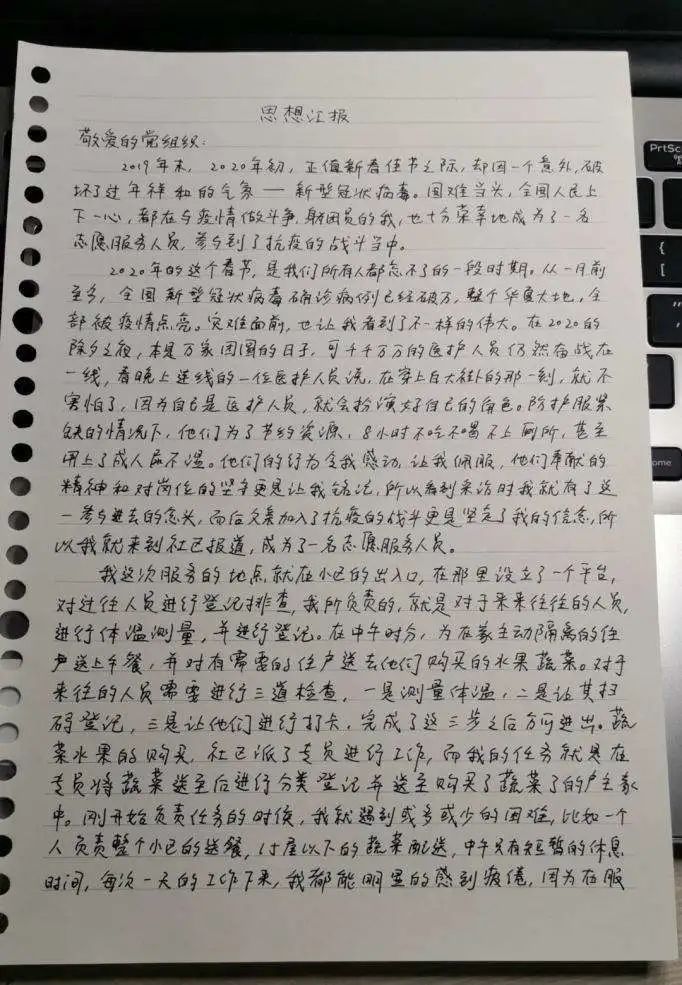 思想汇报
敬爱的党组织:
2019年末,2020年初,正值新春佳节之际,却因一个意外,破
坏了过年祥和的气象——新型冠状病毒。困难当头,全国人民上
下一心,都在与疫情做斗争,身为团员的我,也十分荣幸地成为了一名
志愿服务人员,参与到了抗疫的战斗当中。
2020年的这个春节,是我们所有人都忘不了的一段时期。从一月前
至多,全国新型冠状病毒确诊病例已经破万,整个华夏大地,全
部被疫情点亮。灾难面前,也让我看到了不一样的伟大。在2020的
除夕之夜,本是万家团圆的日子,可千千万万的医护人员仍然奋战在
一线,看晚上连线的一位医护人员说,在穿上白大褂的那一刻,就不
害怕了,因为自己是医护人员,就会扮演好自己的角色。防护服紧
缺的情况下,他们为了节约资源,8小时不吃不喝不上厕所,甚至
用上了成人尿不湿。他们的行为令我感动,让我佩服,他们奉献的
精神和对岗位的坚守更是让我铭记,所以看到采访时我就有了这
一参与进去的念头,而后父亲加入了抗疫的战斗更是坚定了我的信念,所
以我就来到社区报道,成为了一名志愿服务人员。
我这次服务的地点就在小区的出入口,在那里设立了一个平台,
对过往人员进行登记排查,我所负责的,就是对于来来往往的人员,
进行体温测量,并进行登记。在中午时分,为在家主动隔离的住
户送上午餐,并对有需要的住户送去他们购买的水果蔬菜。对于
来往的人员需要进行三道检查,一是测量体温,二是让其扫
码登记,三是让他们进行打卡,完成了这三步之后方可进出。蔬
菜水果的购买,社区派了专员进行工作,而我的任务就是在
专员将蔬菜送至后进行分类登记并送至购买了蔬菜了的户主家
中。刚开始负责任务的时侯,我就遇到或多或少的困难,比如一个
人负责整个小区的送餐,15层以下的蔬菜配送,中午只有短暂的休息
时间,每次一天的工作下来,我都能明显的感到疲倦,因为在服
PrtSc
home